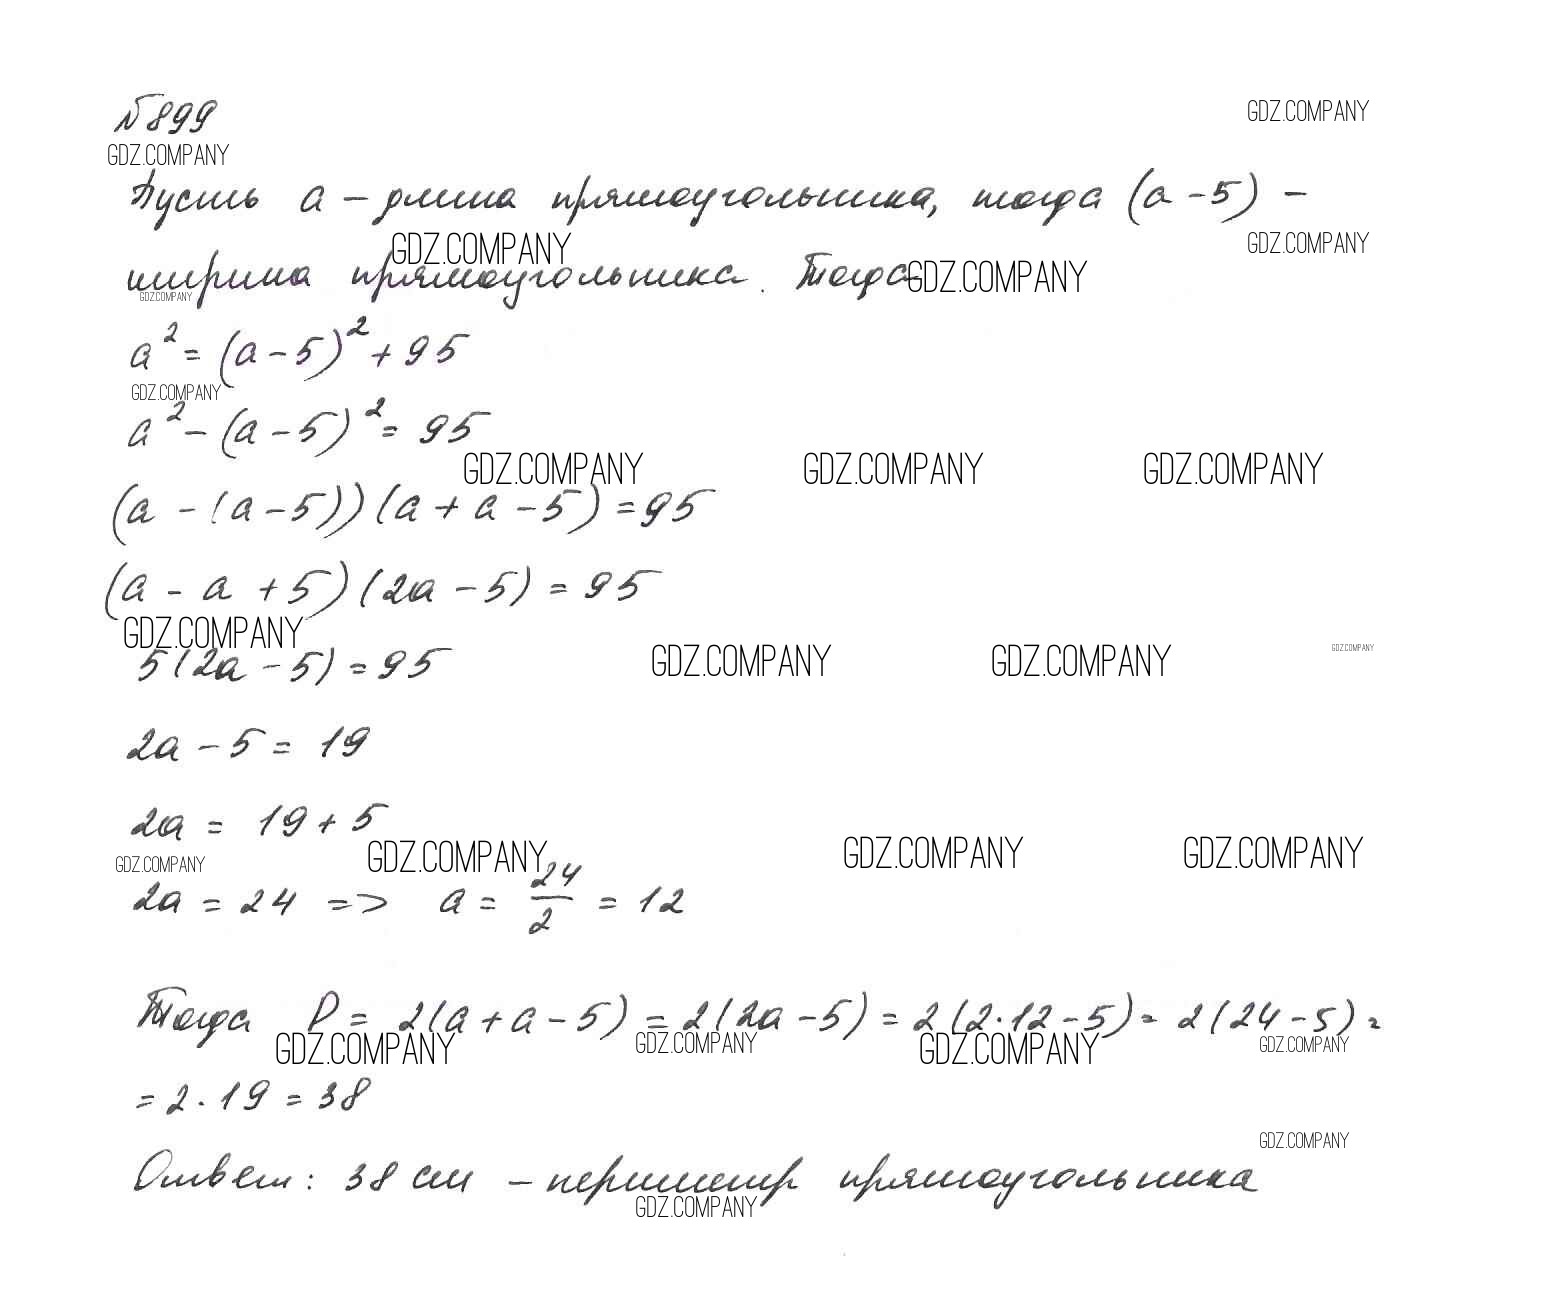 №899
GDZ.COMPANY
GDZ.COMPANY
Пусть a – длина прямоугольника, тогда (a – 5) –
GDZ.COMPANY
GDZ.COMPANY
ширина прямоугольника. Тогда
GDZ.COMPANY
GDZ.COMPANY
a² = (a – 5)² + 95
GDZ.COMPANY
a² – (a – 5)² = 95
GDZ.COMPANY GDZ.COMPANY GDZ.COMPANY
(a – (a – 5))(a + a – 5) = 95
(a – a + 5)(2a – 5) = 95
GDZ.COMPANY
5(2a – 5) = 95
GDZ.COMPANY GDZ.COMPANY GDZ.COMPANY
2a – 5 = 19
2a = 19 + 5
GDZ.COMPANY GDZ.COMPANY GDZ.COMPANY GDZ.COMPANY
2a = 24 => a = 24/2 = 12
Тогда P = 2(a + a – 5) = 2(2a – 5) = 2(2·12 – 5) = 2(24 – 5) =
GDZ.COMPANY GDZ.COMPANY GDZ.COMPANY GDZ.COMPANY
= 2·19 = 38
GDZ.COMPANY
Ответ: 38 см – периметр прямоугольника
GDZ.COMPANY